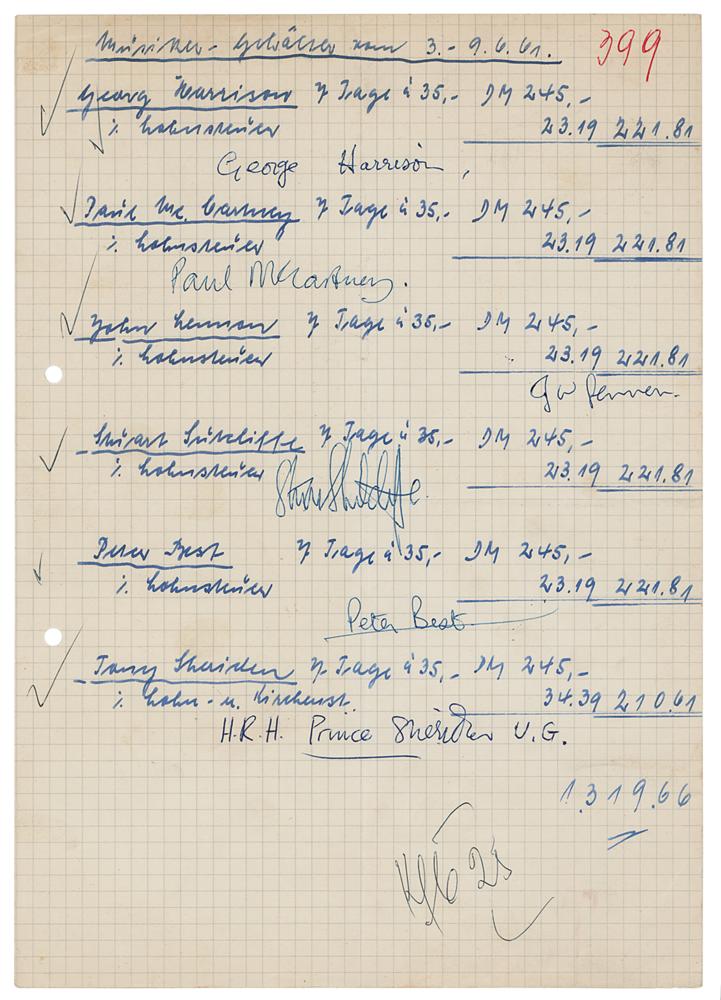 Musiker-Gehälter vom 3.-9.6.61. 399
Georg Harrison 7 Tage à 35,- DM 245,-
./. Lohnsteuer 23.19 221.81
George Harrison,
Paul Mc. Cartney 7 Tage à 35,- DM 245,-
./. Lohnsteuer 23.19 221.81
Paul McCartney.
John Lennon 7 Tage à 35,- DM 245,-
./. Lohnsteuer 23.19 221.81
J W Lennon.
Stuart Sutcliffe 7 Tage à 35,- DM 245,-
./. Lohnsteuer 23.19 221.81
Stuart Sutcliffe.
Peter Best 7 Tage à 35,- DM 245,-
./. Lohnsteuer 23.19 221.81
Peter Best
Tony Sheriden 7 Tage à 35,- DM 245,-
./. Lohn- u. Kirchenst. 34.39 210.61
H.R.H. Prince Sheridan U.G.
1.319.66